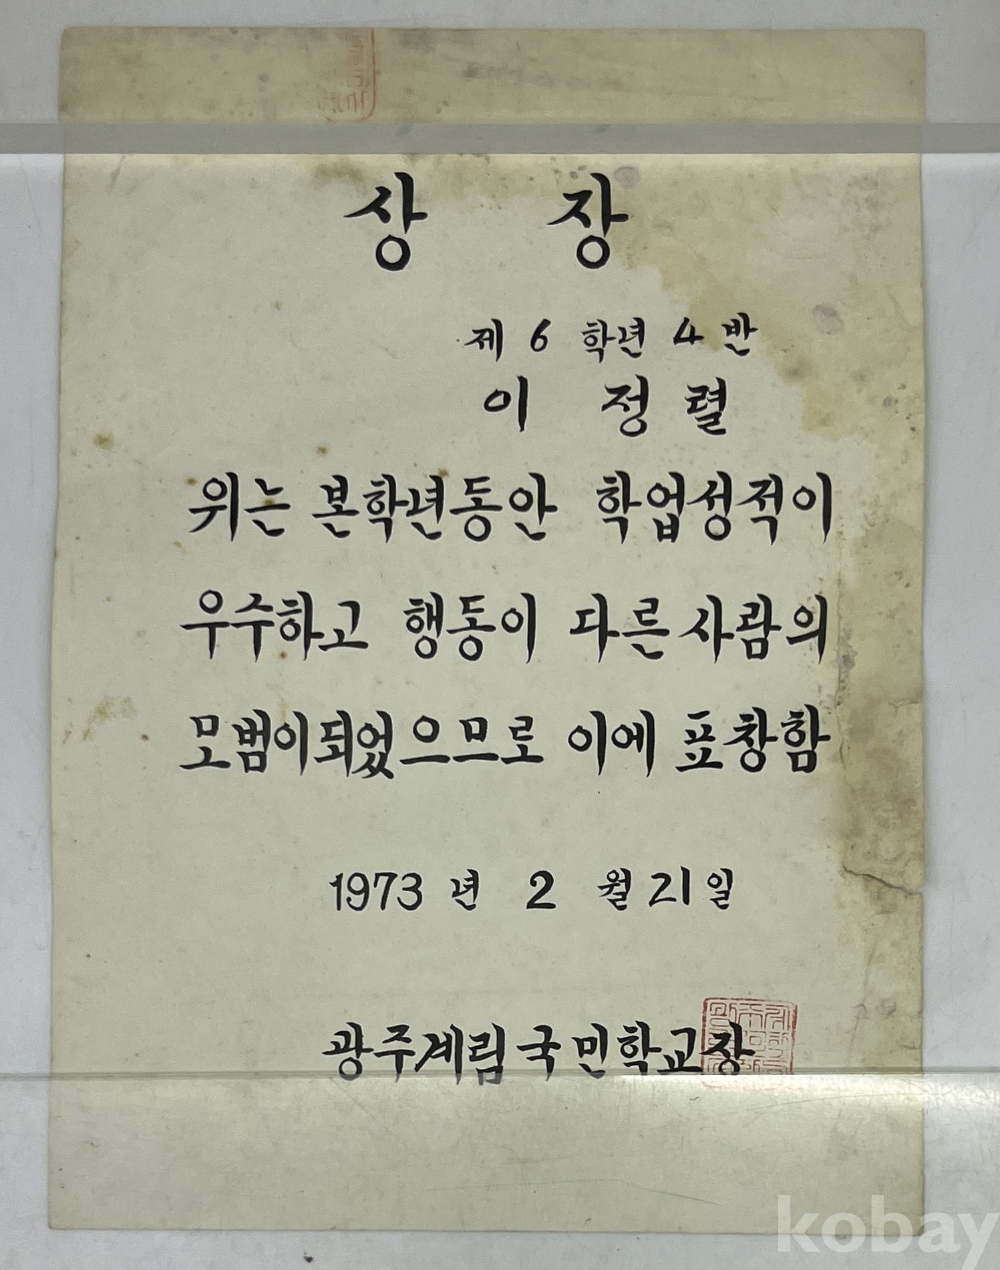 상 장
제 6 학년 4 반
이 정렬
위는 본학년동안 학업성적이
우수하고 행동이 다른사람의
모범이되었으므로 이에 표창함
1973 년 2 월 21 일
광주계림국민학교장
kobay